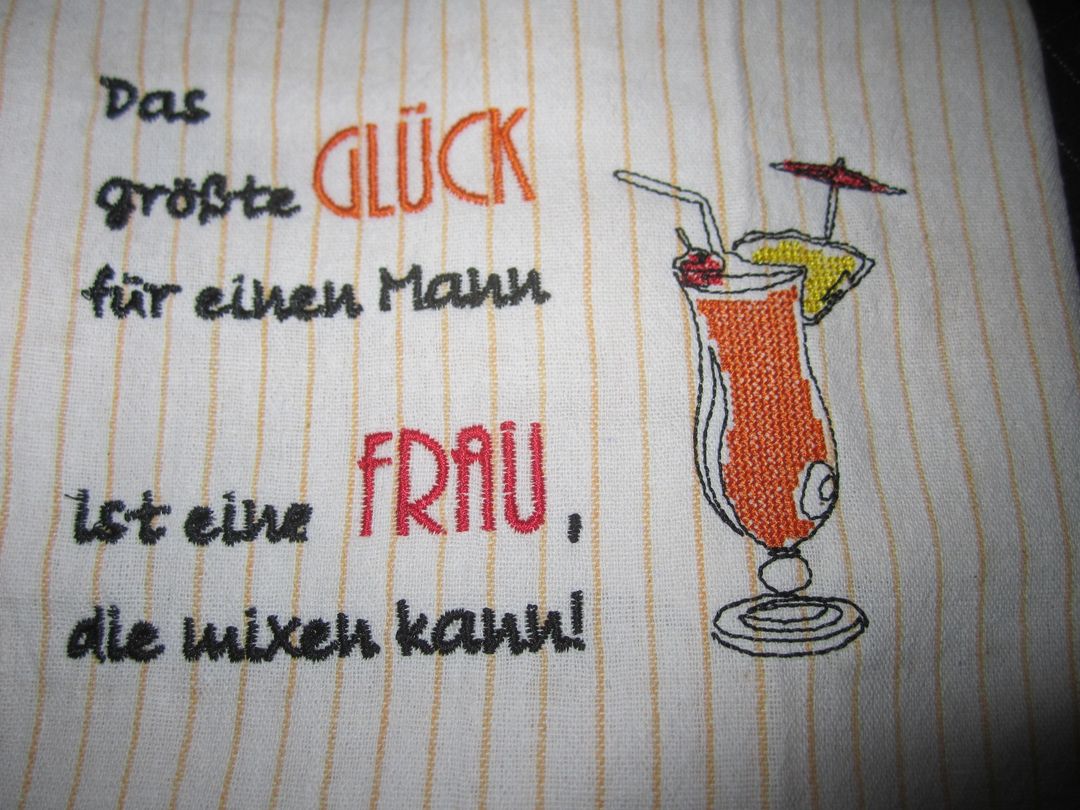 Das
größte GLÜCK
für einen Mann
ist eine FRAU,
die mixen kann!